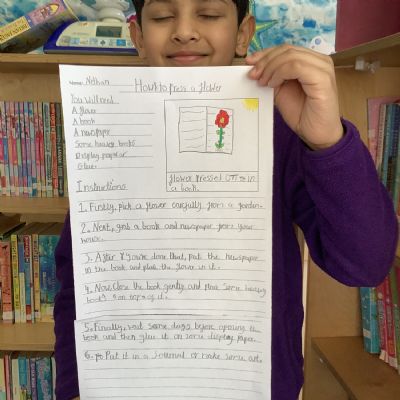 Name: Nethan
How to press a flower
You will need
A flower
A book
A newspaper
Some heavy books
Display paper or
Glue.
flower pressed
in
a book.
Instructions
1. Firstly, pick a flower carefully from a garden.
2. Next, grab a book and newspaper from your
house.
3. After you're done that, put the newspaper
in the book and place the flower in it.
4. Now close the book gently and place some heavy
books on top of it.
5. Finally, wait some days before opening the
book and then glue it on some display paper.
6. Put it in a journal or make some art.